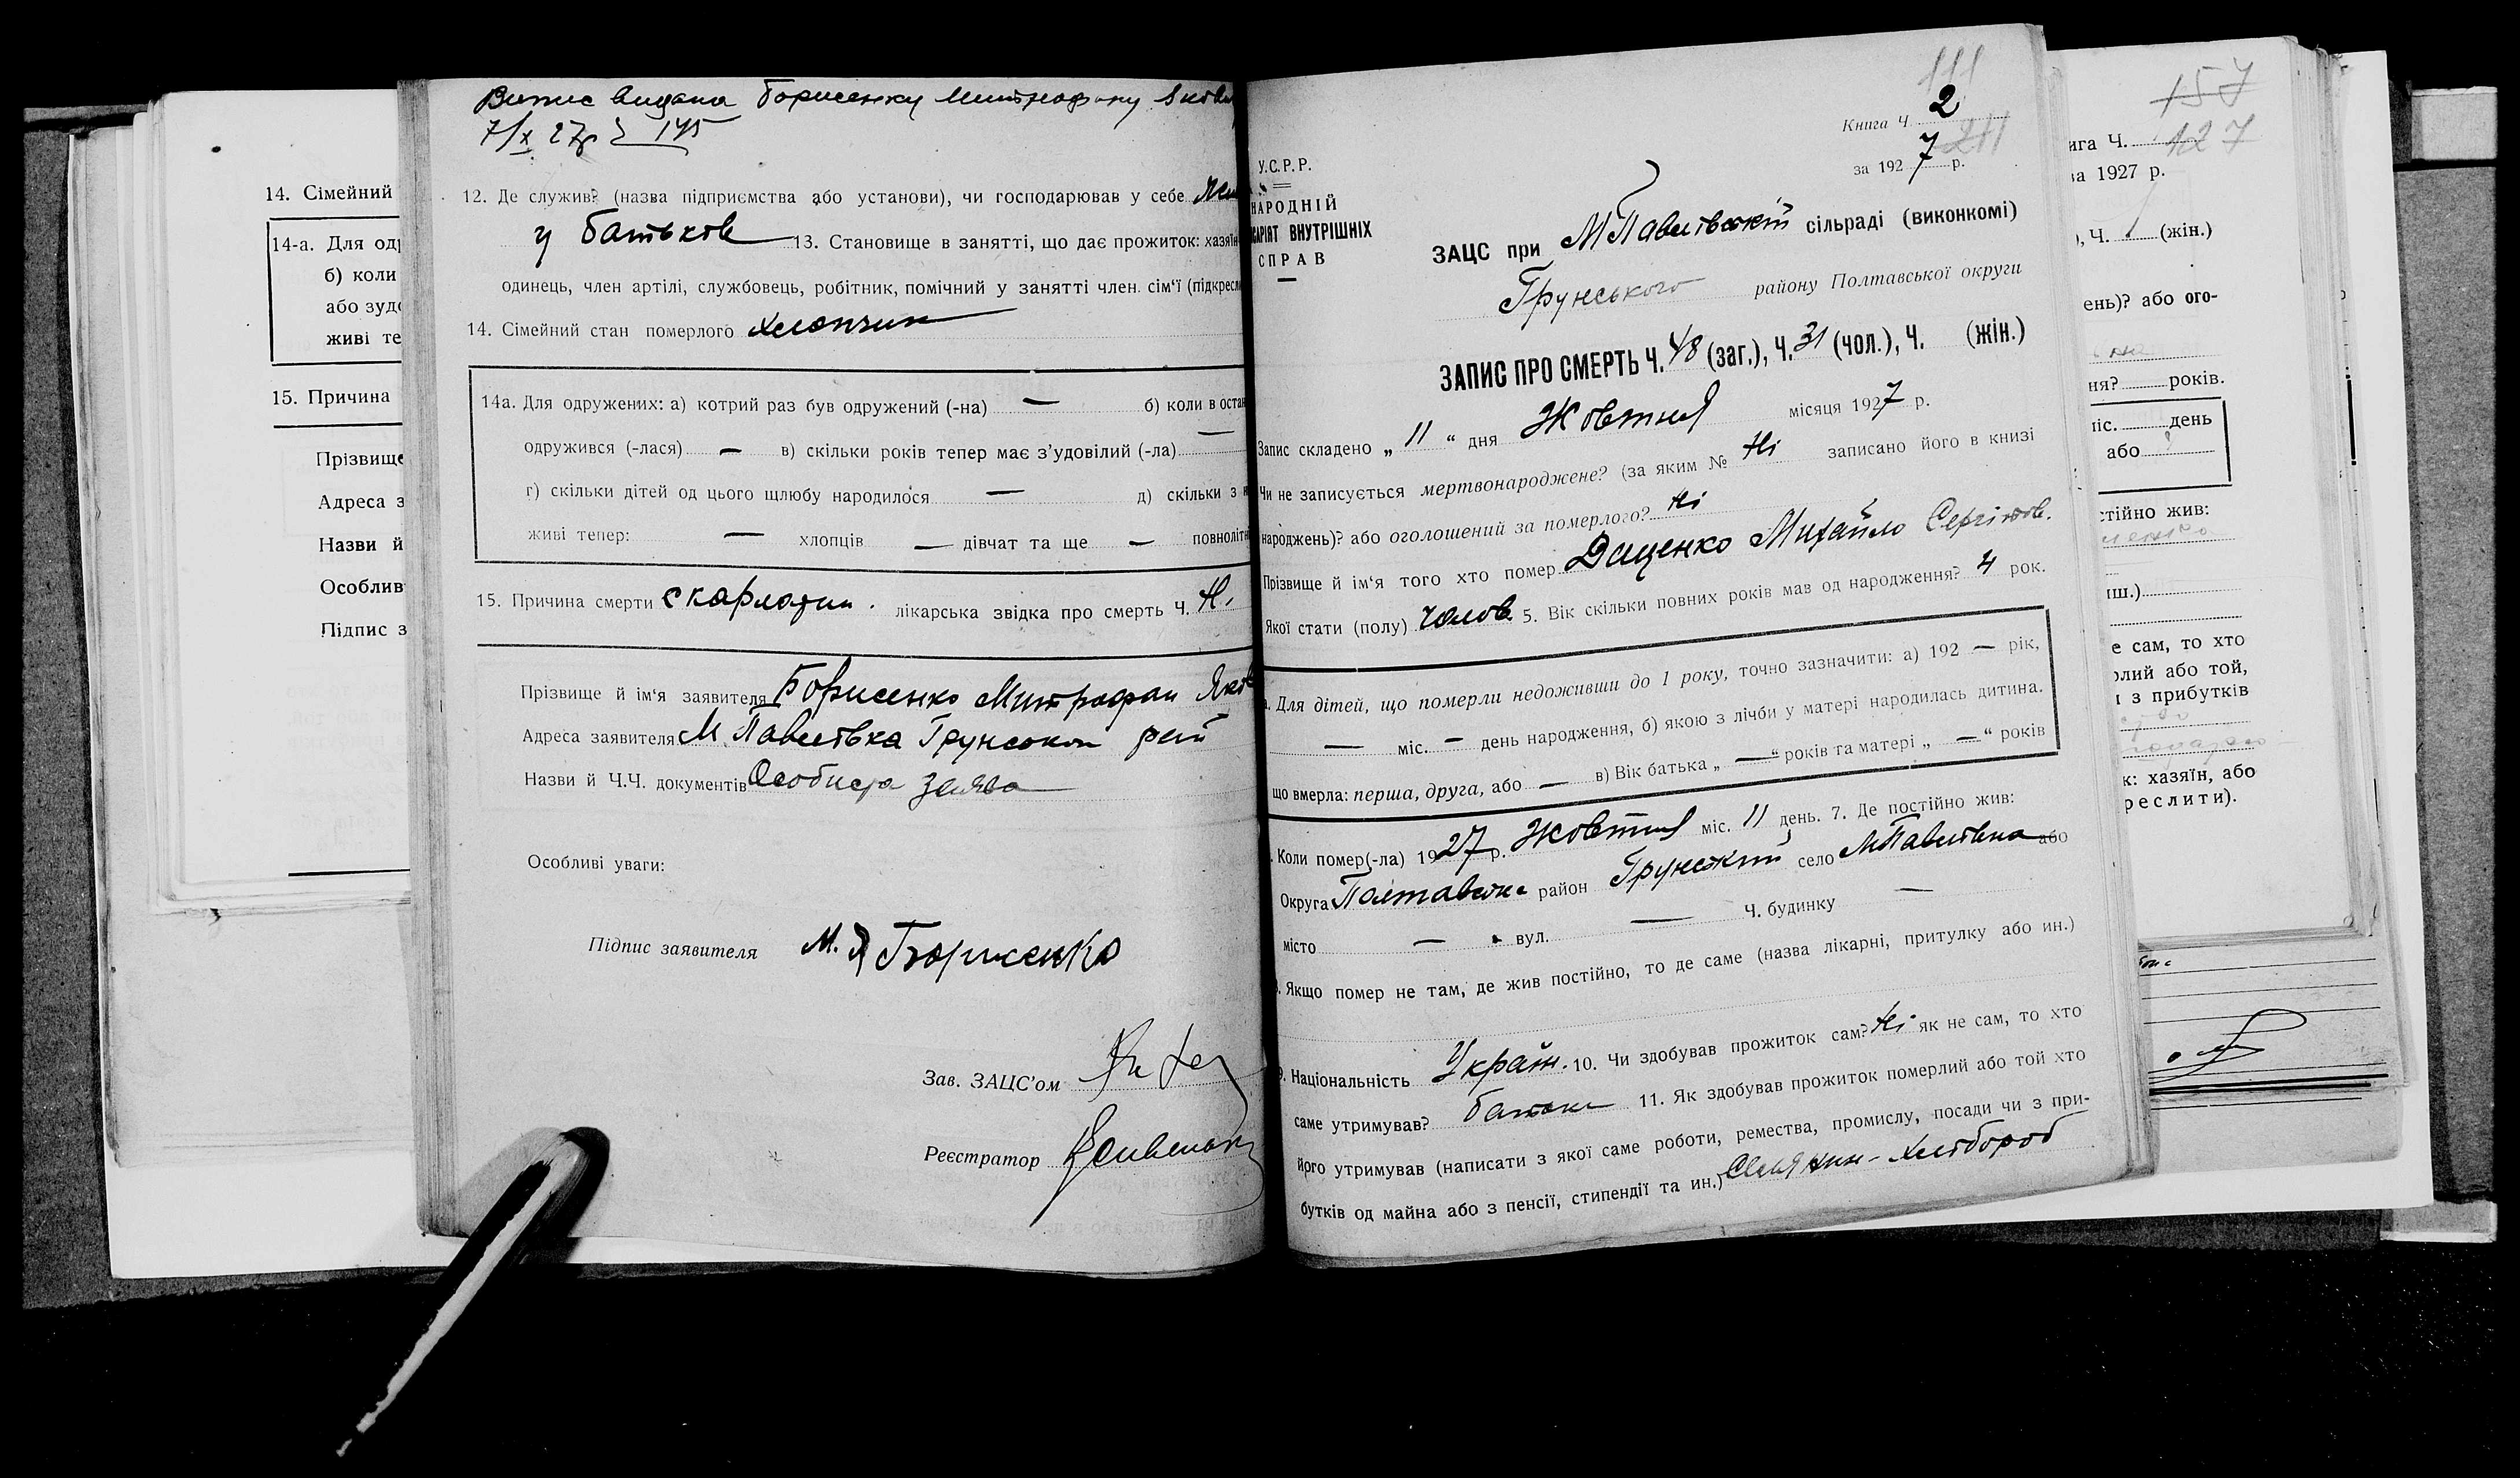 14. Сімейний
14-а. Для од
б) коли
або зудо
живі те
15. Причина
Прізвище
Адреса з
Назви й
Особлив
Підпис з
Випис видана Борисенку Митрофану Яков
7/X 27р 175
12. Де служив? (назва підприємства або установи), чи господарював у себе
у батьков 13. Становище в занятті, що дає прожиток: хазяїн
одинець, член артілі, службовець, робітник, помічний у занятті член. сім'ї (підкресл
14. Сімейний стан померлого хлопчик
14а. Для одружених: а) котрий раз був одружений (-на) — б) коли в остан
одружився (-лася) — в) скільки років тепер має з'удовілий (-ла) —
г) скільки дітей од цього щлюбу народилося — д) скільки з н
живі тепер: — хлопців — дівчат та ще — повноліт
15. Причина смерти скарлатин. лікарська звідка про смерть Ч. Ні
Прізвище й ім'я заявителя Борисенко Митрофан Яков
Адреса заявителя М Павлівка Грунської рай
Назви й Ч.Ч. документів Особиста заява
Особливі уваги:
Підпис заявителя М. Я Борисенко
Зав. ЗАЦС'ом
Реєстратор
111
Книга Ч. 2
211
за 1927 р.
У.С.Р.Р.
НАРОДНІЙ
САРІЯТ ВНУТРІШНІХ
СПРАВ
ЗАЦС при МПавлівській сільраді (виконкомі)
Грунського району Полтавської округи
ЗАПИС ПРО СМЕРТЬ Ч. 48 (заг.), Ч. 31 (чол.), Ч. (жін.)
Запис складено „ 11 “ дня Жовтня місяця 1927 р.
Чи не записується мертвонароджене? (за яким № Ні записано його в книзі
народжень)? або оголошений за померлого? Ні
Прізвище й ім'я того хто помер Даценко Михайло Сергійов.
Якої стати (полу) чолов. 5. Вік скільки повних років мав од народження? 4 рок.
Для дітей, що померли недоживши до 1 року, точно зазначити: а) 192 — рік,
— міс. — день народження, б) якою з лічби у матері народилась дитина.
що вмерла: перша, друга, або — в) Вік батька „ — “ років та матері „ — “ років
Коли помер(-ла) 1927 р. Жовтня міс. 11 день. 7. Де постійно жив:
Округа Полтавська район Грунський село МПавлівка або
місто — вул. — Ч. будинку —
Якщо помер не там, де жив постійно, то де саме (назва лікарні, притулку або ин.)
9. Національність Україн. 10. Чи здобував прожиток сам? Ні як не сам, то хто
саме утримував? батьки 11. Як здобував прожиток померлий або той хто
його утримував (написати з якої саме роботи, ремества, промислу, посади чи з при-
бутків од майна або з пенсії, стипендії та ин.) Селянин - хлібороб
157
ига Ч. 127
за 1927 р.
), Ч. (жін.)
ень)? або ого-
ня? років.
міс. день
або
стійно жив:
иш.)
е сам, то хто
рлий або той,
и з прибутків
к: хазяїн, або
реслити).